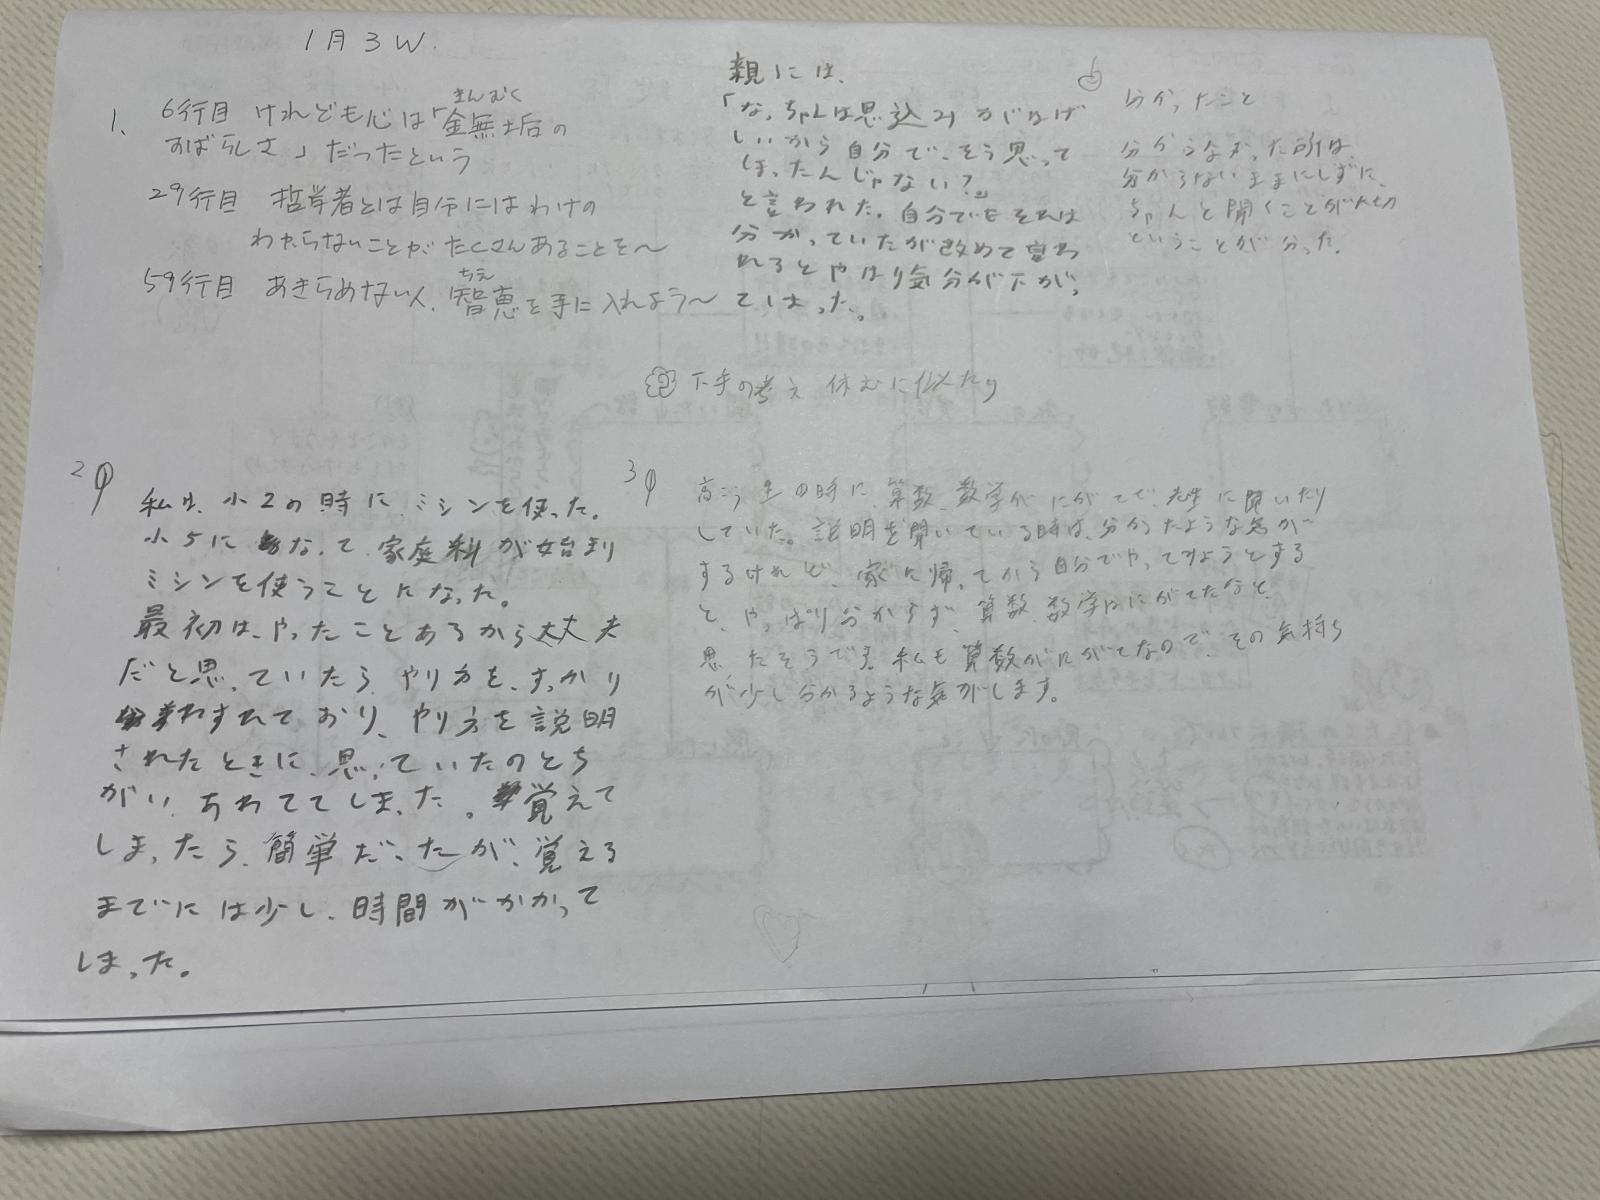 1月3W.
1、6行目 けれども心は「金無垢の
きんむく
すばらしさ」だったという
29行目 哲学者とは自分にはわけの
わからないことが、たくさんあることを〜
59行目 あきらめない人、智恵を手に入れよう〜
ちえ
2
私は、小2の時に、ミシンを使った。
小5になって、家庭科が始まり
ミシンを使うことになった。
最初は、やったことあるから大丈夫
だと思っていたら、やり方を、すっかり
わすれており、やり方を説明
されたときに、思っていたのとち
がい、あわててしまった。覚えて
しまったら、簡単だったが、覚える
までには少し、時間がかかって
しまった。
親には、
「なっちゃんは思い込みがはげ
しいから自分で、そう思って
しまったんじゃない?」
と言われた。自分でもそれは
分かっていたが改めて言わ
れるとやはり気分が下がっ
てしまった。
下手の考え 休むに似たり
3
の時に、算数、数学がにがてで、先生に聞いたり
していた。説明を聞いている時は、分かったような気が
するけれど、家に帰ってから自分でやってみようとする
と、やっぱり分からず、算数、数学はにがてだなと、
思ったそうです。私も算数がにがてなので、その気持ち
が少し分かるような気がします。
分かったこと
分からなかった所は
分からないままにしずに、
ちゃんと聞くことが大切
ということが分った。